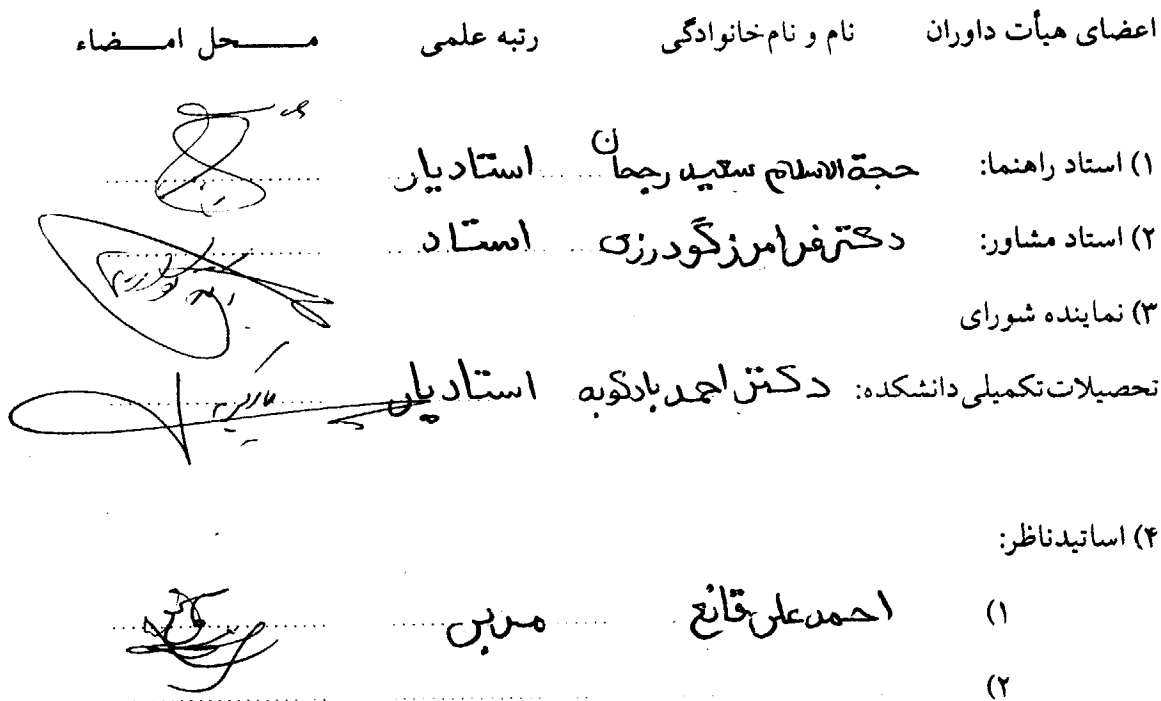 اعضای هیأت داوران نام و نام‌خانوادگی رتبه علمی محل امضاء
۱) استاد راهنما: حجة الاسلام سعید رجحان استادیار
۲) استاد مشاور: دکتر فرامرز گودرزی استاد
۳) نماینده شورای
تحصیلات تکمیلی دانشکده: دکتر احمد بادکوبه استادیار
۴) اساتید ناظر:
۱) احمد علی قانع مربی
۲)